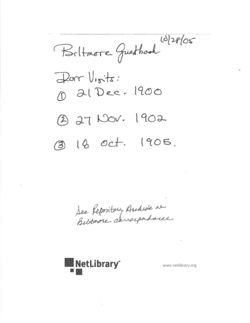 10/28/05
Biltmore Guestbook
Dorr Visits:
① 21 Dec. 1900
② 27 Nov. 1902
③ 18 Oct. 1905.
See Repository, Archive re
Biltmore correspondence
NetLibrary®
www.netlibrary.org